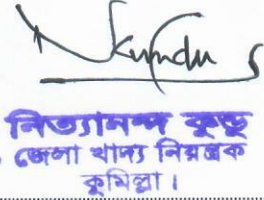 NKundu
নিত্যানন্দ কুন্ডু
জেলা খাদ্য নিয়ন্ত্রক
কুমিল্লা।